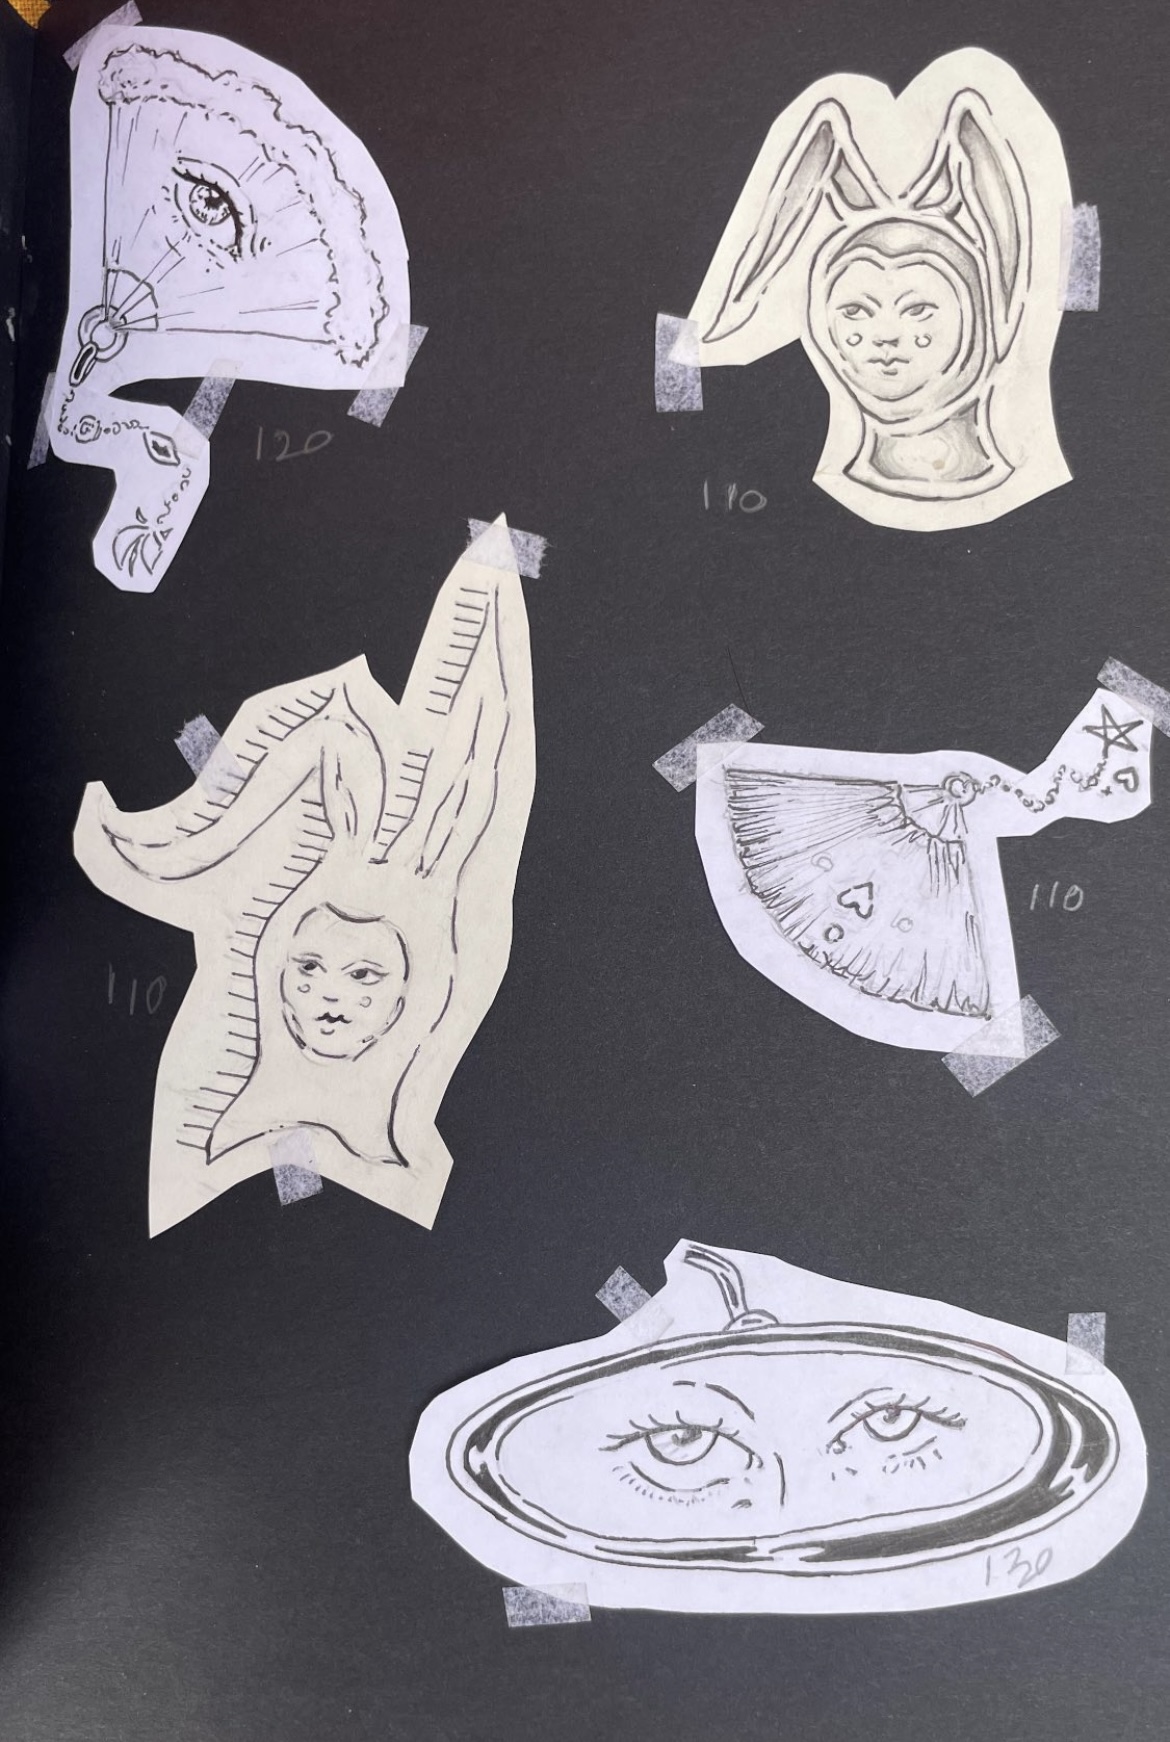 120
110
110
110
130